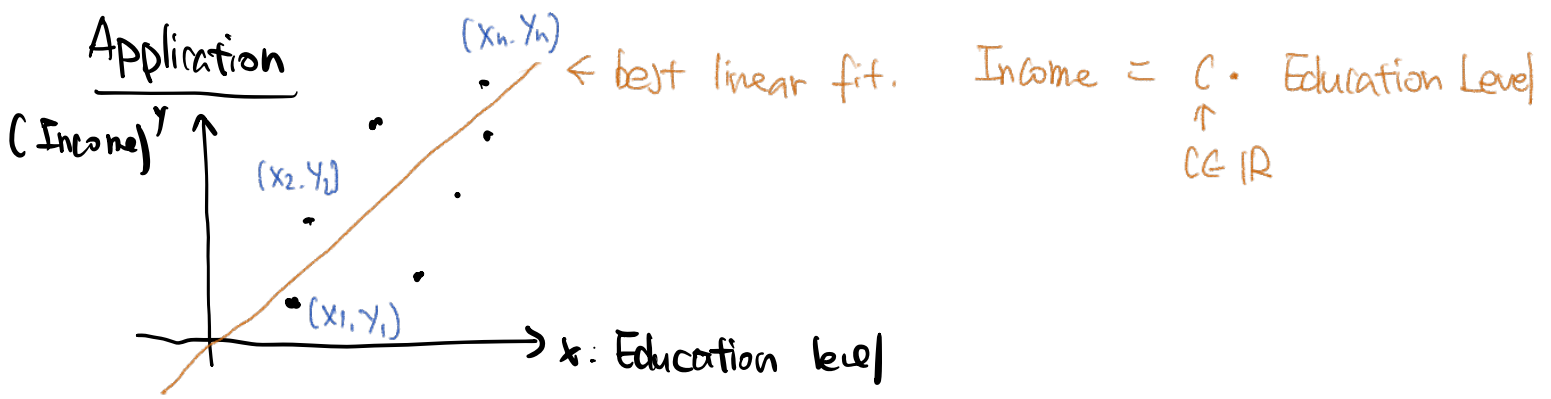 Application
(xn. yn)
← best linear fit. Income = C · Education Level
↑
C∈ℝ
(Income) y
(x2. y2)
(x1, y1)
x: Education level